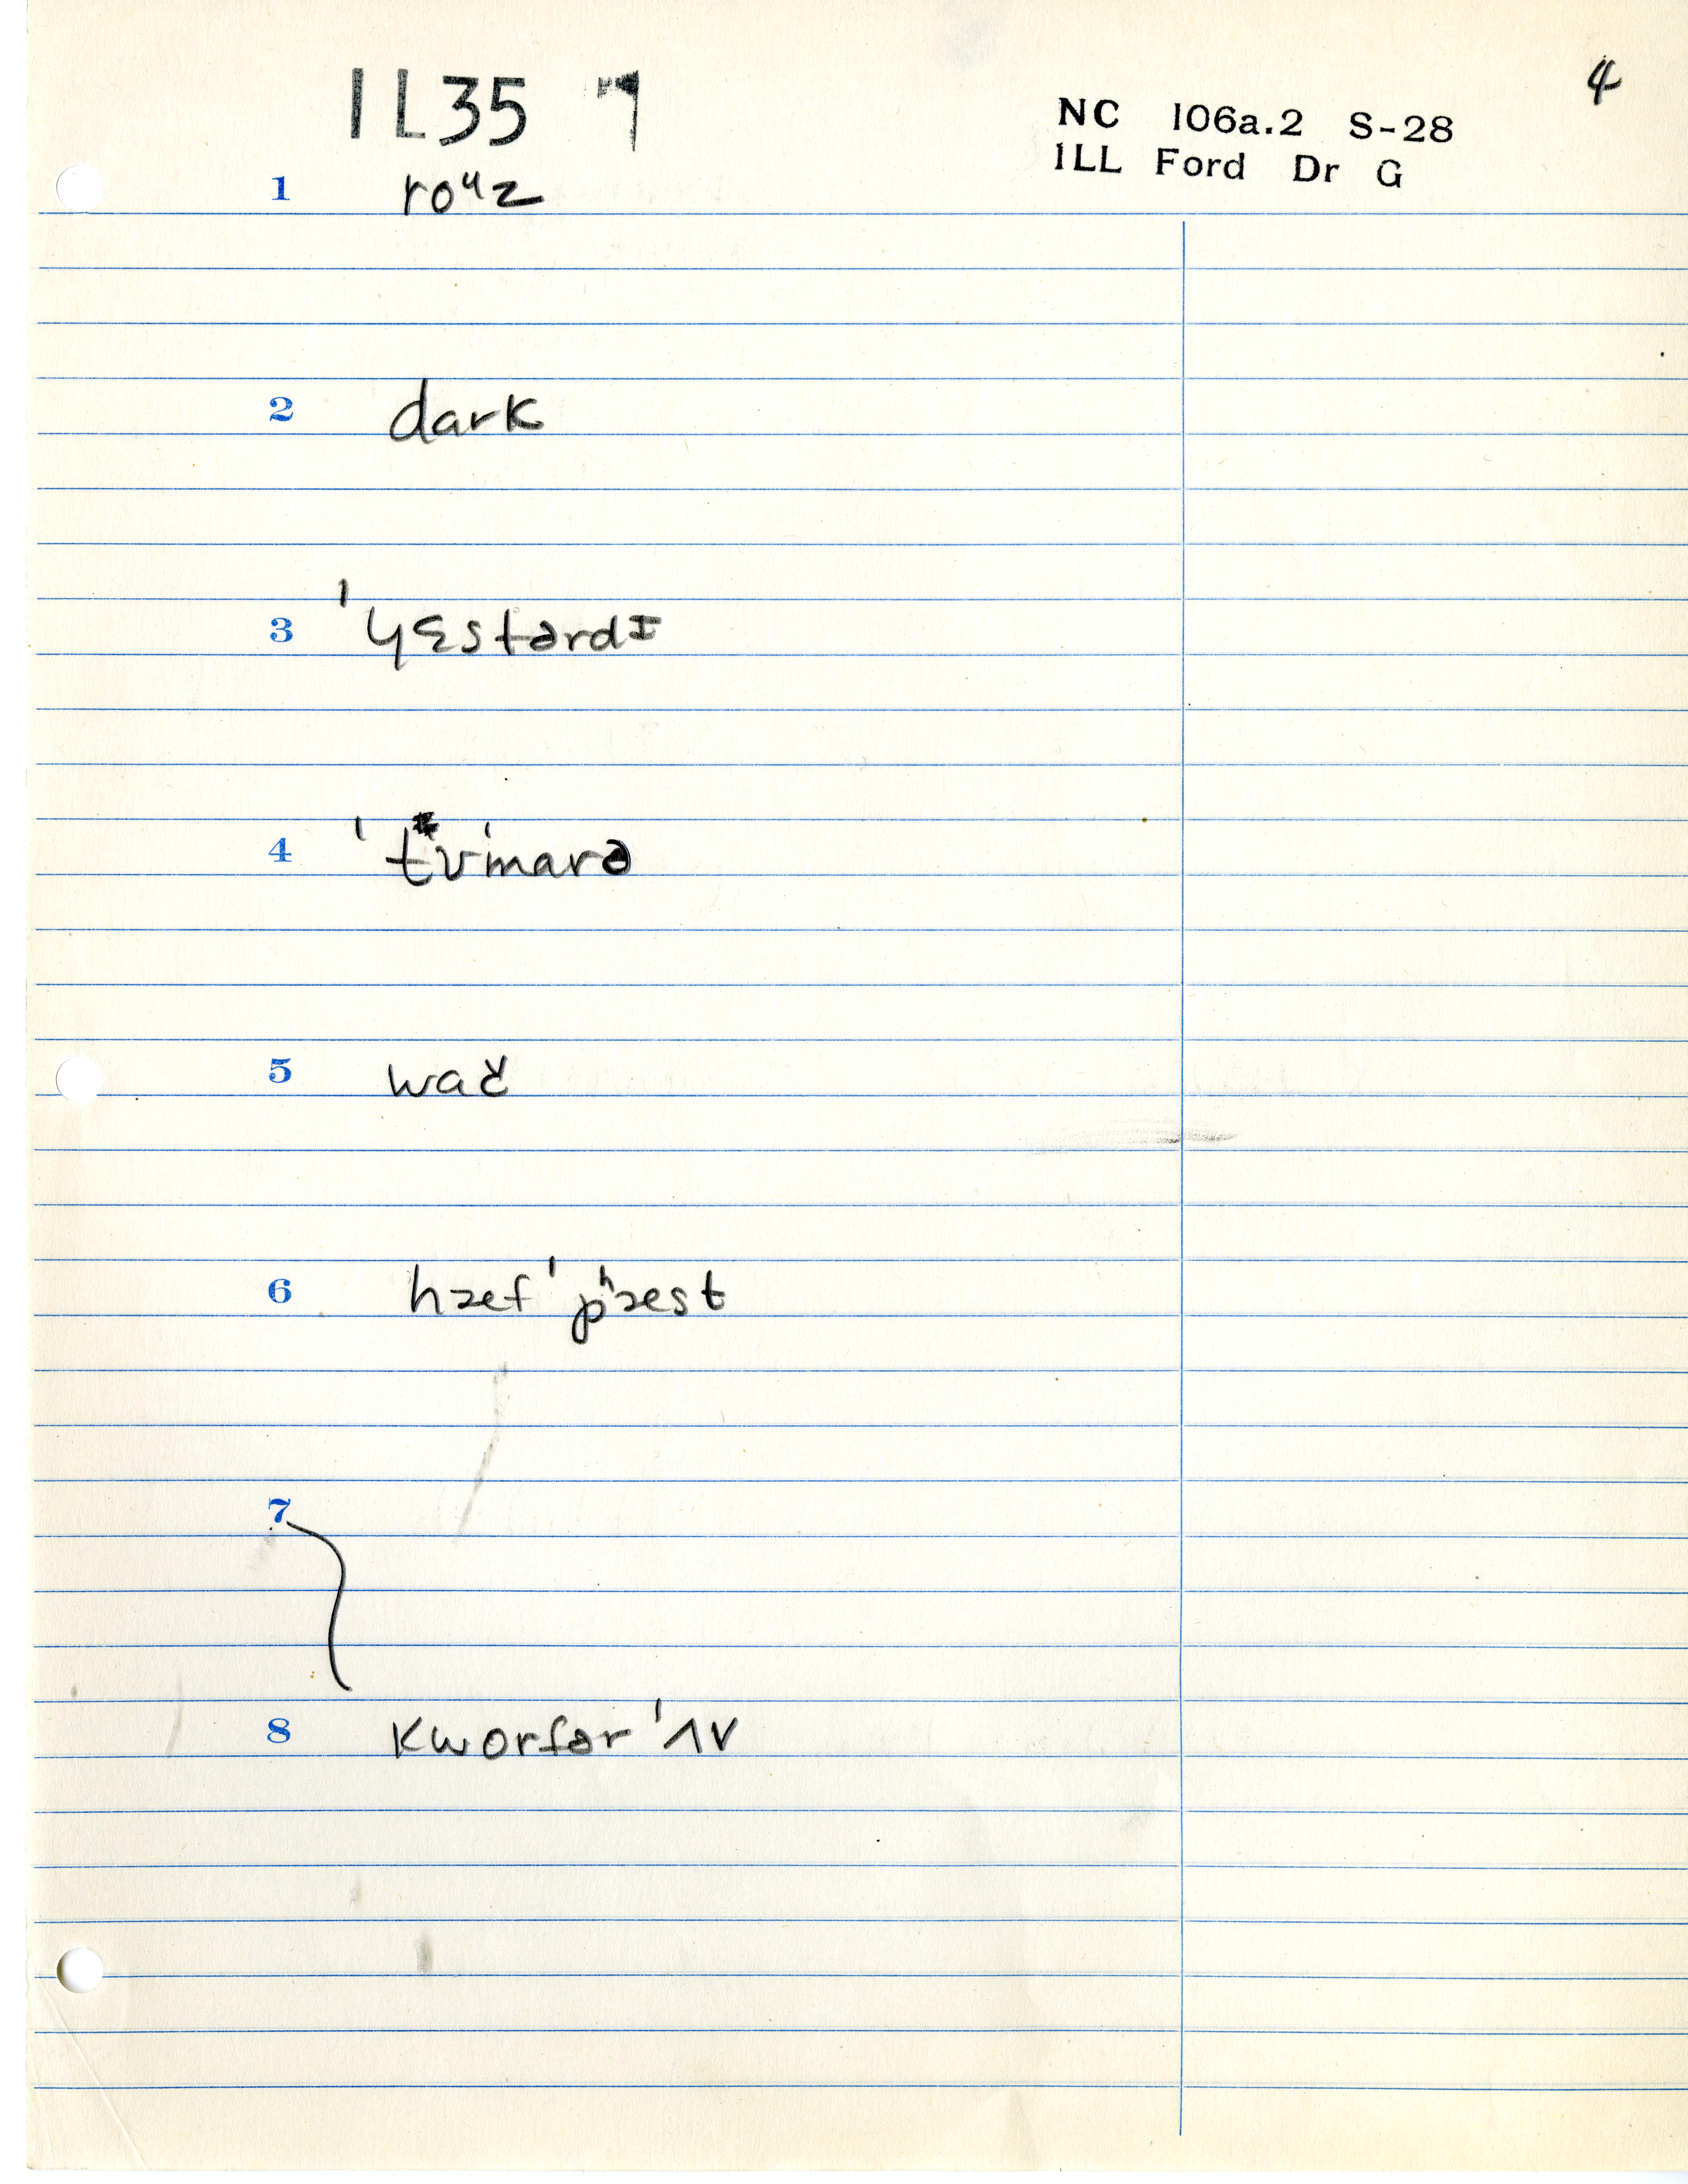 4
IL35
NC 106a.2 S-28
ILL Ford Dr G
1 roᵘz
2 dark
3 ˈyɛstərdɪ
4 ˈtʊˈmarə
5 wač
6 hæf ˈpʰæst
7
8 kworfər ˈʌv